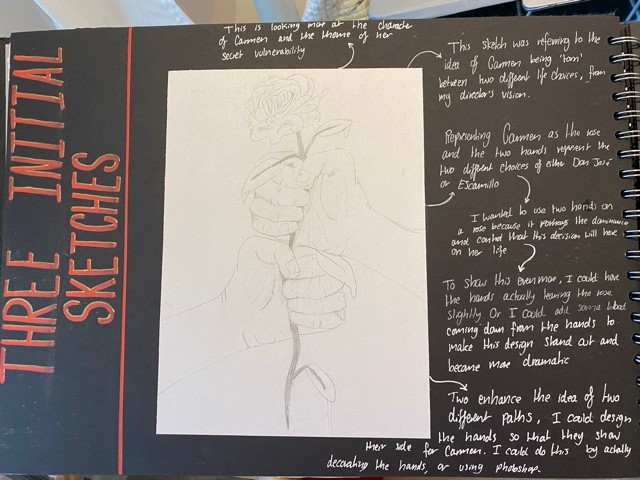 THREE INITIAL
SKETCHES
This is looking more at the character
of Carmen and the theme of her
secret vulnerability
This sketch was referring to the
idea of Carmen being 'torn'
between two different life choices, from
my director's vision.
Representing Carmen as the rose
and the two hands represent the
two different choices of either Don José
or Escamillo
I wanted to use two hands on
a rose because it portrays the dominance
and control that this decision will have
on her life
To show this even more, I could have
the hands actually tearing the rose
slightly Or I could add some blood
coming down from the hands to
make this design stand out and
become more dramatic
Two enhance the idea of two
different paths, I could design
the hands so that they show
their side for Carmen. I could do this by actually
decorating the hands, or using photoshop.